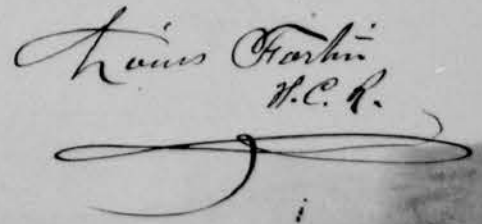 Louis Fortin
H.C.R.